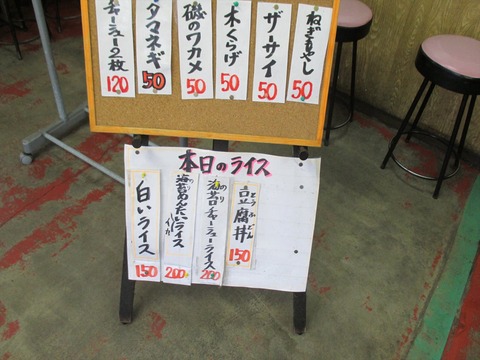 ねぎもやし
50
ザーサイ
50
木くらげ
50
磯のワカメ
50
タマネギ
50
チャーシュー2枚
120
本日のライス
豆腐丼
とうふどん
150
海苔チャーシューライス
のり
200
海苔めんたいライス
200
白いライス
150